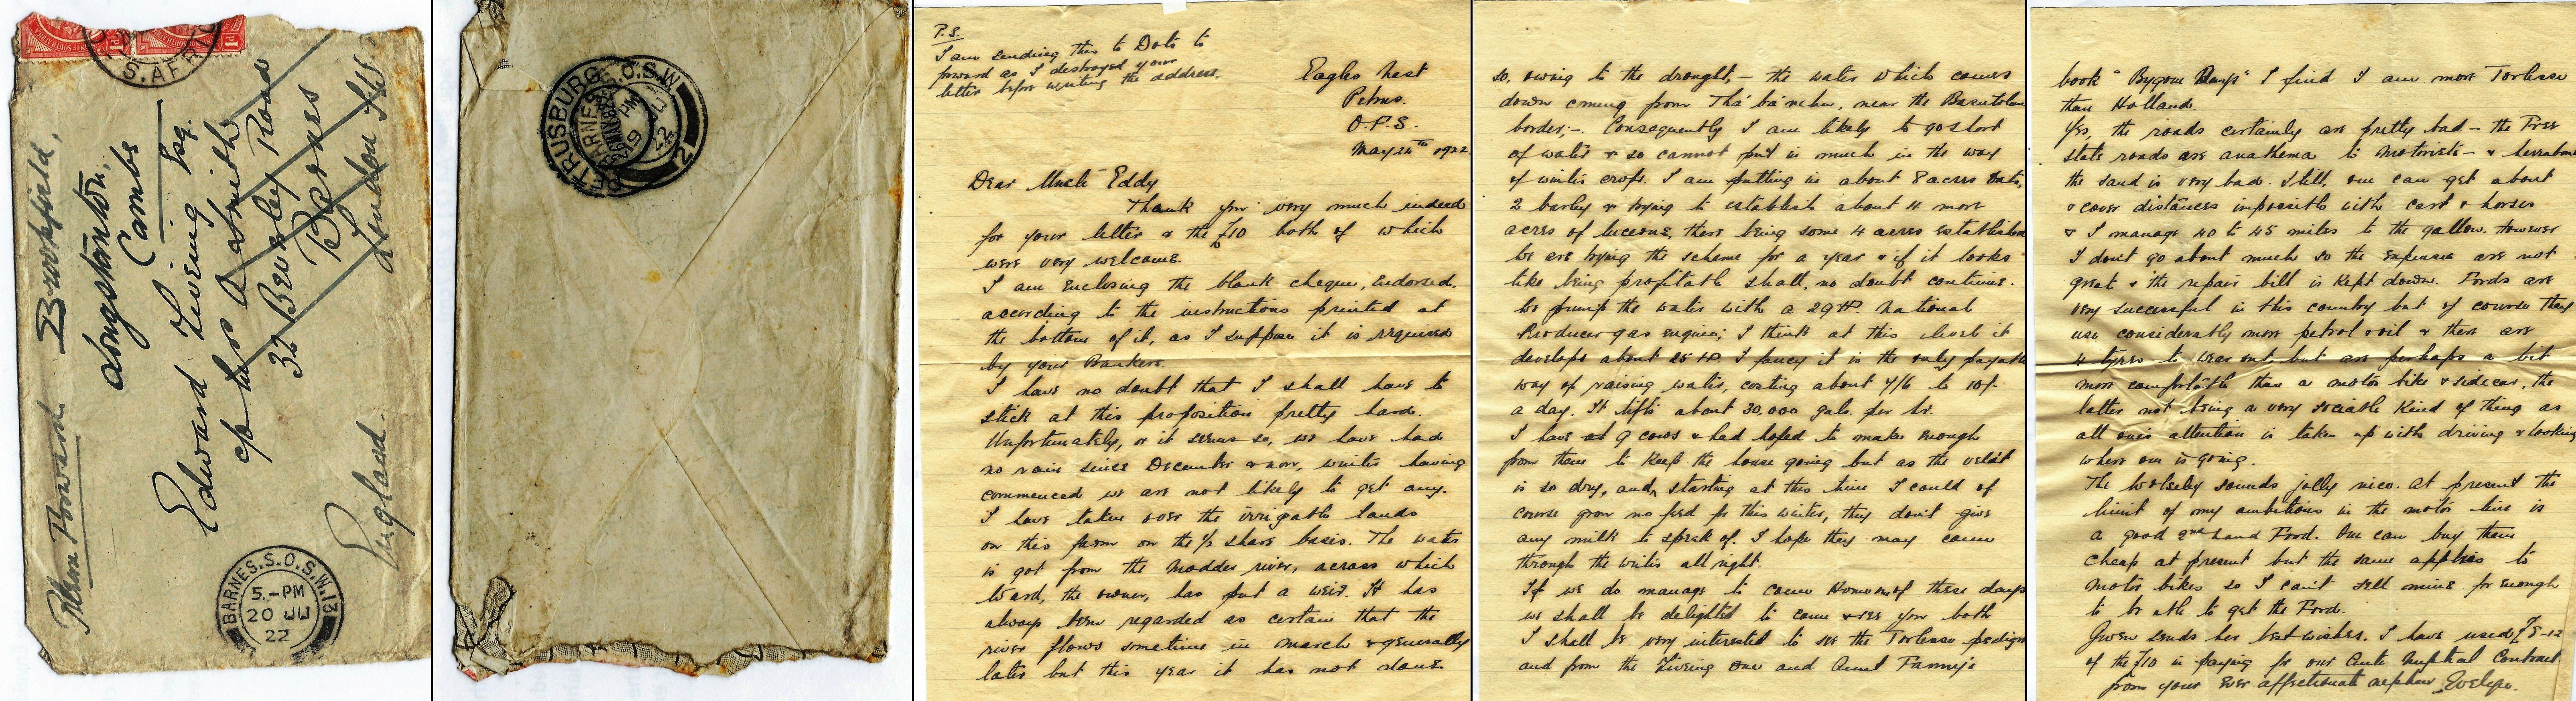 S. AFRICA
Please Forward
Brookfield,
Longstanton,
Cambs
Edward Liveing Esq.
c/o Miss A
32 Beverley Road
Barnes
London SW.
England.
BARNES.S.O.S.W.13
5.-PM
20 JU
22
PETRUSBURG
BARNES.S.O.S.W.
PM
19 JU
22
P.S.
I am sending this to Dots to
forward as I destroyed your
letter before writing the address.
Eagles Nest
Petrus.
O.F.S.
May 24th 1922
Dear Uncle Eddy
Thank you very much indeed
for your letter & the £10 both of which
were very welcome.
I am enclosing the blank cheque, endorsed,
according to the instructions printed at
the bottom of it, as I suppose it is required
by your Bankers.
I have no doubt that I shall have to
stick at this proposition pretty hard.
Unfortunately, or it seems so, we have had
no rain since December & now, winter having
commenced we are not likely to get any.
I have taken over the irrigable lands
on this farm on the ½ share basis. The water
is got from the Modder river, across which
Ward, the owner, has put a weir. It has
always been regarded as certain that the
river flows sometime in March & generally
later but this year it has not done
so, owing to the drought, – the water which comes
down coming from Tha'ba'nchu, near the Basutoland
border; –. Consequently I am likely to go short
of water & so cannot put in much in the way
of winter crops. I am putting in about 8 acres Oats,
2 barley & trying to establish about 4 more
acres of lucerne, there being some 4 acres established
We are trying the scheme for a year & if it looks
like being profitable shall, no doubt continue.
We pump the water with a 29 HP. National
Producer gas engine; I think at this level it
develops about 25 HP. I fancy it is the only payable
way of raising water, costing about 7/6 to 10/-
a day. It lifts about 30,000 gals. per hr.
I have 9 cows & had hoped to make enough
from them to keep the house going but as the veldt
is so dry, and, starting at this time I could of
course grow no feed for this winter, they don't give
any milk to speak of. I hope they may come
through the winter all right.
If we do manage to come Home one of these days
we shall be delighted to come & see you both
I shall be very interested to see the Torlesse pedigree
and from the Liveing one and Aunt Fanny's
book "Bygone Days" I find I am more Torlesse
than Holland.
Yes, the roads certainly are pretty bad – the Free
State roads are anathema to motorists – &
the sand is very bad. Still, one can get about
& cover distances impossible with cart & horses
& I manage 40 to 45 miles to the gallon. However
I don't go about much so the expenses are not
great & the repair bill is kept down. Fords are
very successful in this country but of course they
use considerably more petrol & oil & there are
4 tyres to wear out, but are perhaps a bit
more comfortable than a motor bike & sidecar, the
latter not being a very sociable kind of thing as
all one's attention is taken up with driving & looking
where one is going.
The Wolseley sounds jolly nice. At present the
limit of my ambitions in the motor line is
a good 2nd hand Ford. One can buy them
cheap at present but the same applies to
motor bikes so I can't sell mine for enough
to be able to get the Ford.
Gwen sends her best wishes. I have used
of the £10 in paying for our Ante Nuptial Contract
from your ever affectionate nephew Evelyn.